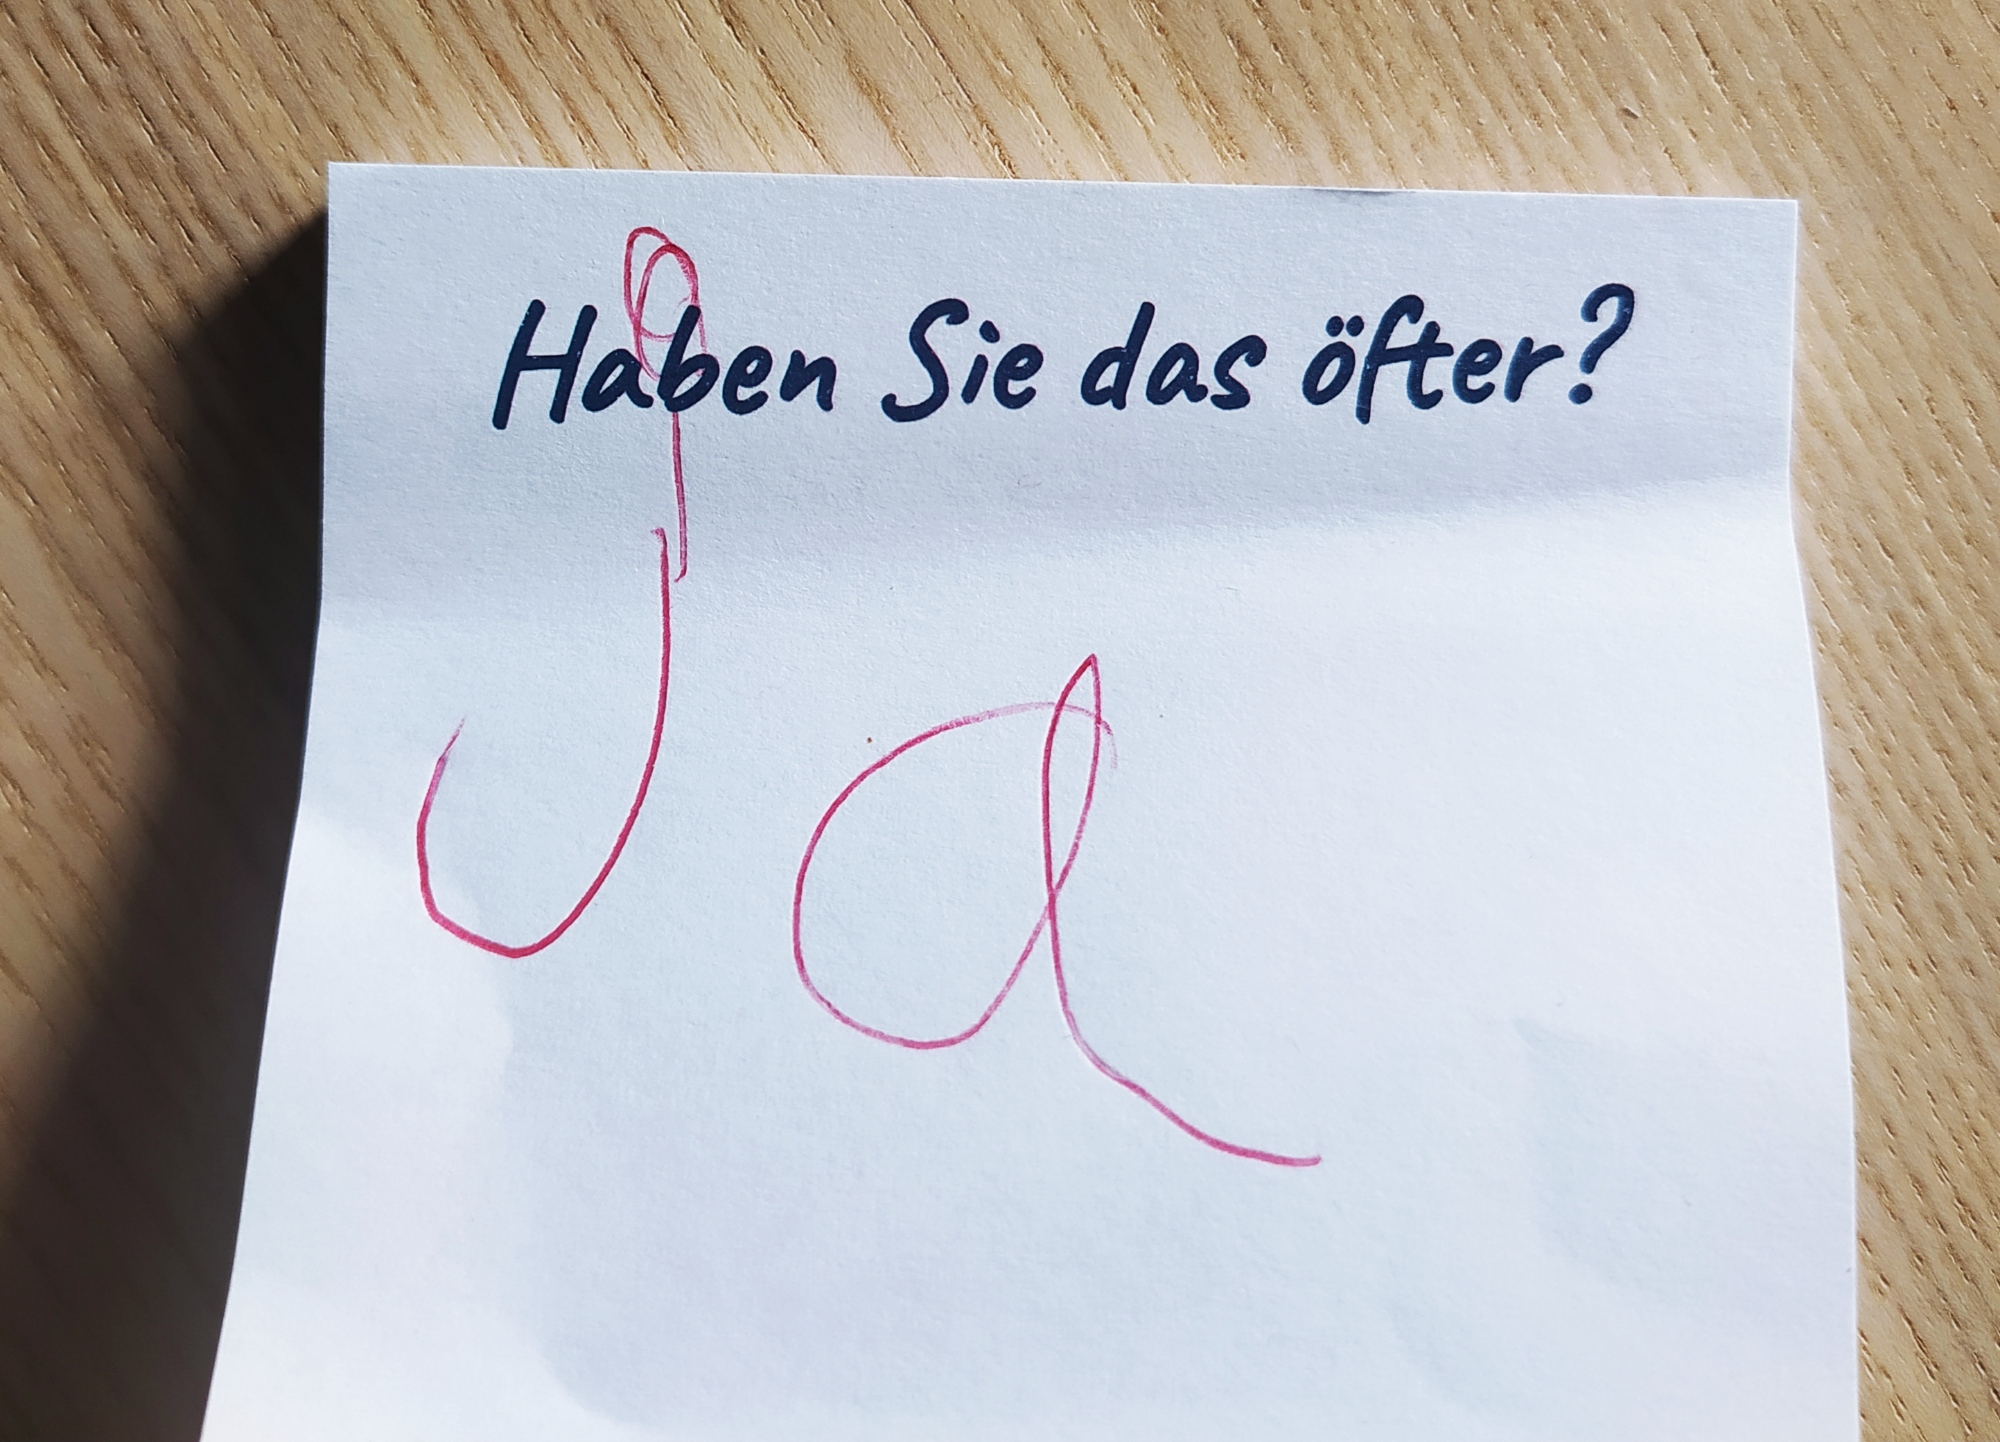 Haben Sie das öfter?
Ja